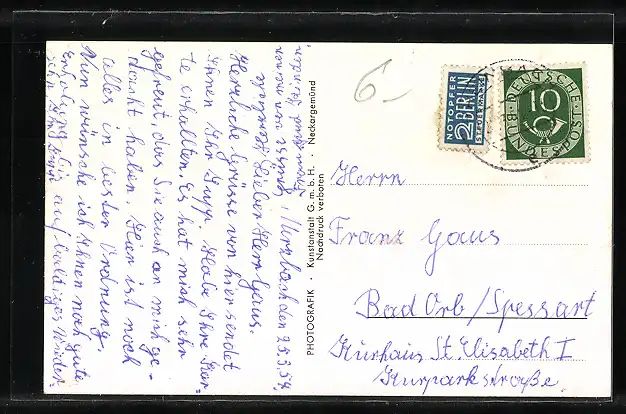 6.-
NOTOPFER
2 BERLIN
STEUERMARKE
DEUTSCHE
BUNDESPOST
10
Herrn
Franz Gaus
Bad Orb/Spessart
Kurhaus St. Elisabeth I
Kurparkstraße.
PHOTOGRAFIK · Kunstanstalt G. m. b. H. · Neckargemünd
Nachdruck verboten
Würzbach den 25.5.54,
Lieber Herr Gaus.
Herzliche Grüsse von hier sendet
Ihnen Ihr Habe Ihre Kar-
te erhalten. Es hat mich sehr
gefreut, das Sie auch an mich ge-
dacht haben. Hier ist noch
alles in bester Ordnung.
Nun wünsche ich Ihnen noch gute
Erholung bis auf baldiges Wieder-